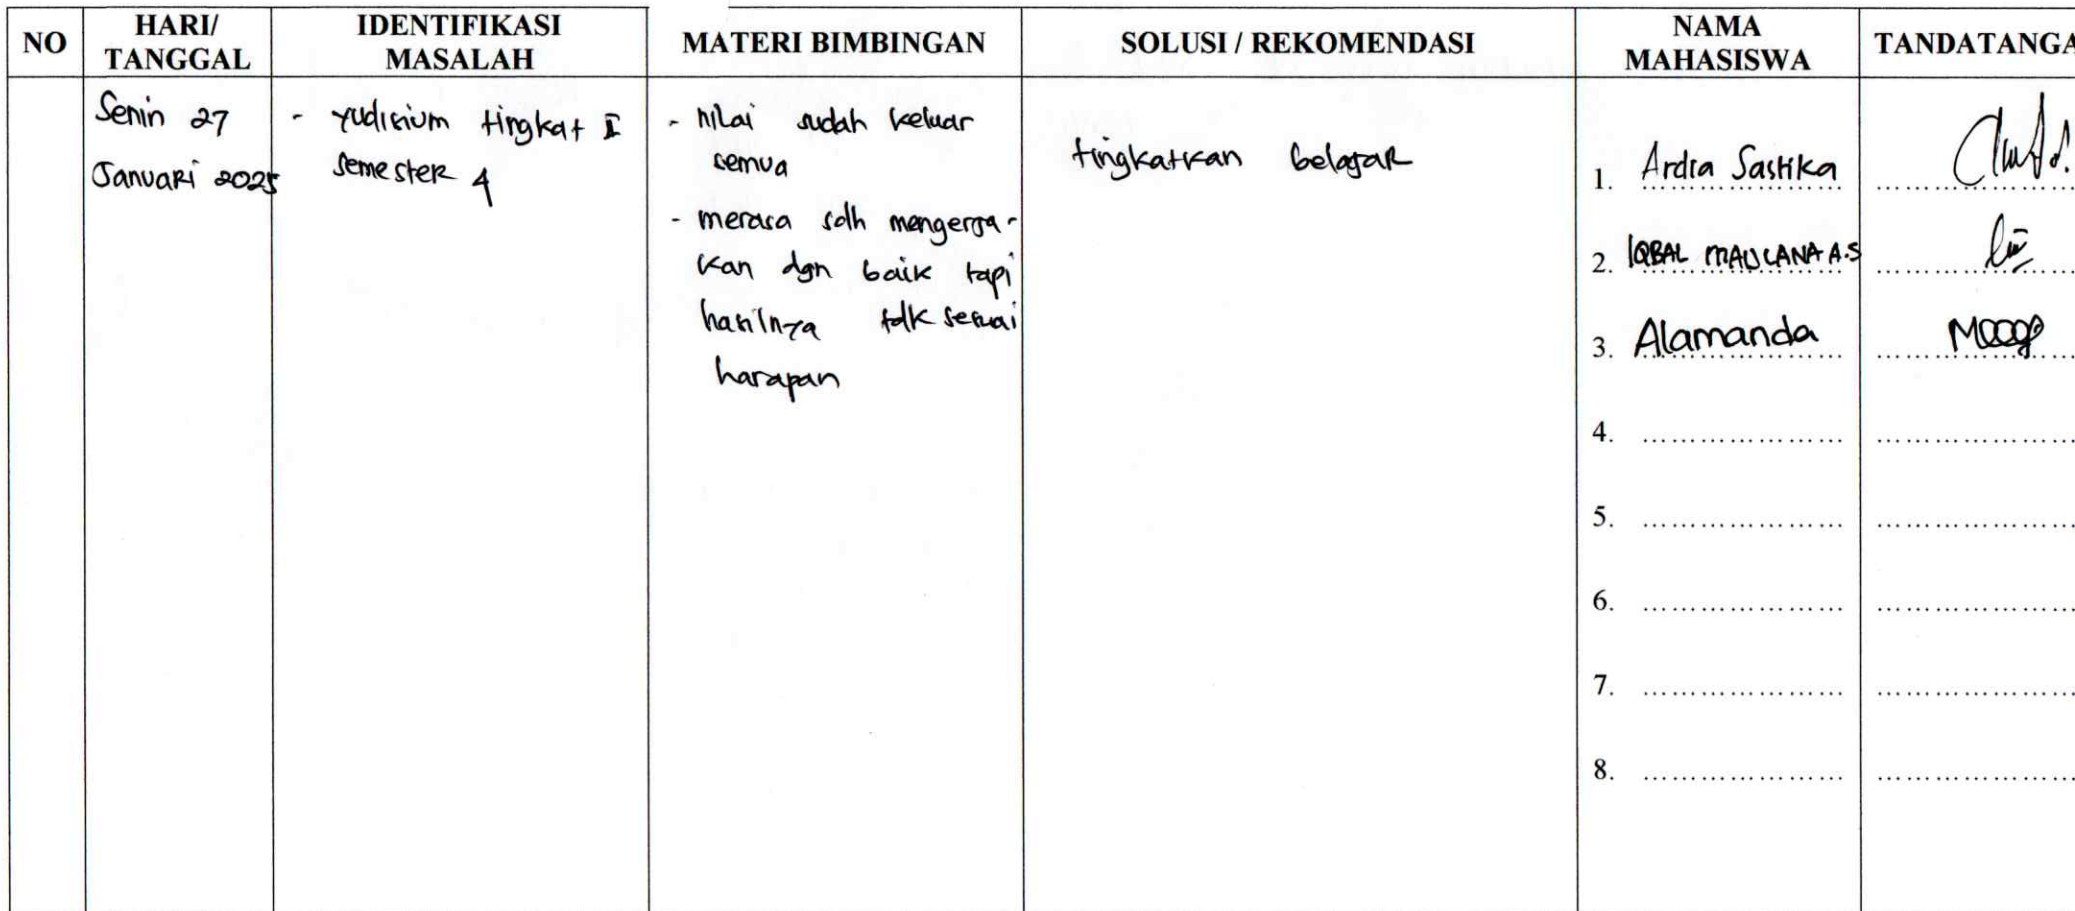 NO
HARI/
TANGGAL
IDENTIFIKASI
MASALAH
MATERI BIMBINGAN
SOLUSI / REKOMENDASI
NAMA
MAHASISWA
TANDATANGA
Senin 27
Januari 2025
- yudisium tingkat I
semester 4
- nilai sudah keluar
semua
- merasa sdh mengerja-
kan dgn baik tapi
hasilnya tdk sesuai
harapan
tingkatkan belajar
1. Ardra Sastika
2. IQBAL MAULANA A.S
3. Alamanda
4. ....................
5. ....................
6. ....................
7. ....................
8. ....................